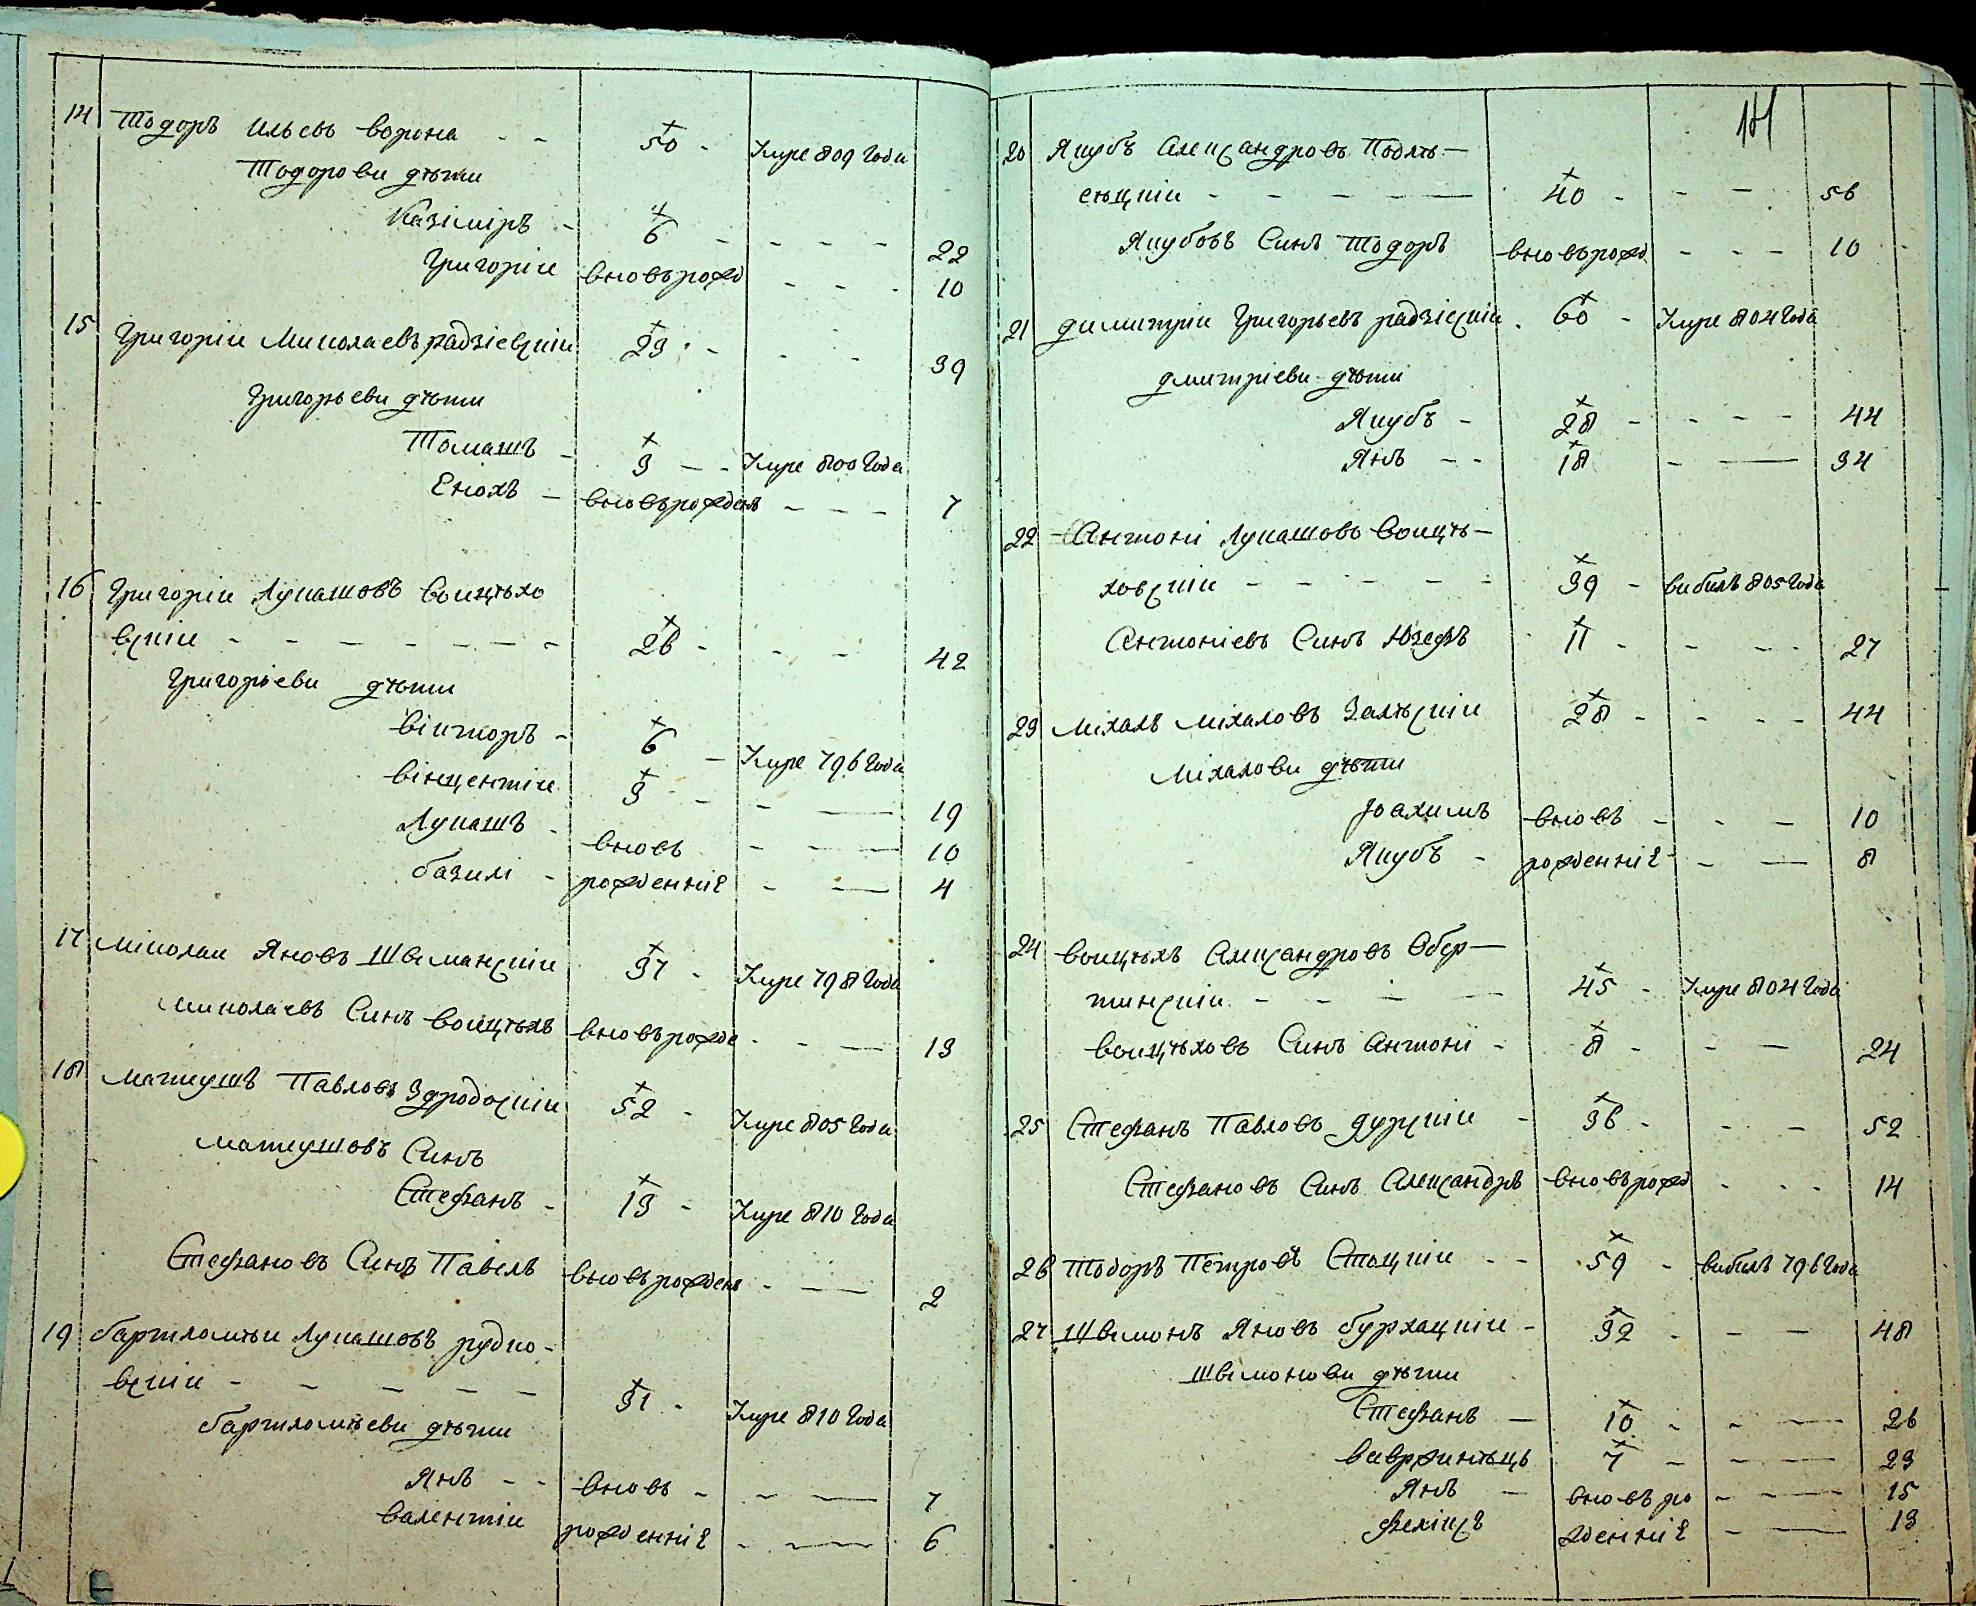 14 Тодоръ Ильевъ Ворона - - 50 - Умре 809 Года
Тодорови дѣти
Казіміръ - 6 - - - - 22
Григоріи вновърожд - - - 10
15 Григоріи Миколаевъ радзіевскіи 23 - - - 39
Григорьеви дѣти
Томашъ - 3 - - Умре 800 Года
Енохъ - вновърожденъ - - - 7
16 Григоріи Лукашовъ воицѣхо
вскіи - - - - - - - 26 - - - 42
Григоріеви дѣти
Вікторъ - 6 - Умре 796 Года
Вінцентіи 3 - - — 19
Лукашъ - вновь - - — 10
базилі - рожденніе - — 4
17 Міколаи Яновъ Швиманскіи 37 - Умре 798 Года
Миколаевъ Синъ воицѣхъ вновърожде - - — 13
18 Матеушъ Павловъ Здродоскіи 52 - Умре 805 Года
Матеушовъ Синъ
Стефанъ - 13 - Умре 810 Года
Стефановъ Синъ Павелъ вновърожденъ - - — 2
19 бартломѣи Лукашовъ рудко-
вскіи - - - - - 31 - Умре 810 Года
бартломѣеви дѣти
Янъ - - вновь - - - — 7
валентіи рожденніе - - — 6
141
20 Якубъ Александровъ Подлѣ—
сецкіи - - - - — 40 - - - 56
Якубовъ Синъ Тодоръ вновърожд - - - 10
21 димитріи Григорьевъ радзіескіи - 60 - Умре 804 Года
дмитріеви дѣти
Якубъ - 28 - - - - 44
Янъ - - 18 - — 34
22 Антоні Лукашовъ Воицѣ—
ховскіи - - - - - - 39 - вибилъ 805 Года
Антоніевъ Синъ Юзефъ 11 - - - - 27
23 міхалъ міхаловъ Залѣскіи 28 - - - - 44
міхалови дѣти
Іоахимъ вновъ - - — 10
Якубъ - рожденніе - — 8
24 воицѣхъ Александровъ Обер—
тинскіи - - - — 45 - Умре 804 Года
воицѣховъ Синъ Антоні - 8 - - — 24
25 Стефанъ Павловъ дужскіи - 36 - - - 52
Стефановъ Синъ Александръ вновърожд - - - 14
26 Тодоръ Петровъ Стоцкіи - - 59 - вибилъ 796 Года
27 Швимонъ Яновъ бурхацкіи - 32 - - — 48
Швимонови дѣти
Стефанъ — 10 - - — 26
вавржинѣцъ 7 - - — 23
Янъ — вновъ ро - - — 15
феліксъ жденніе - — 13